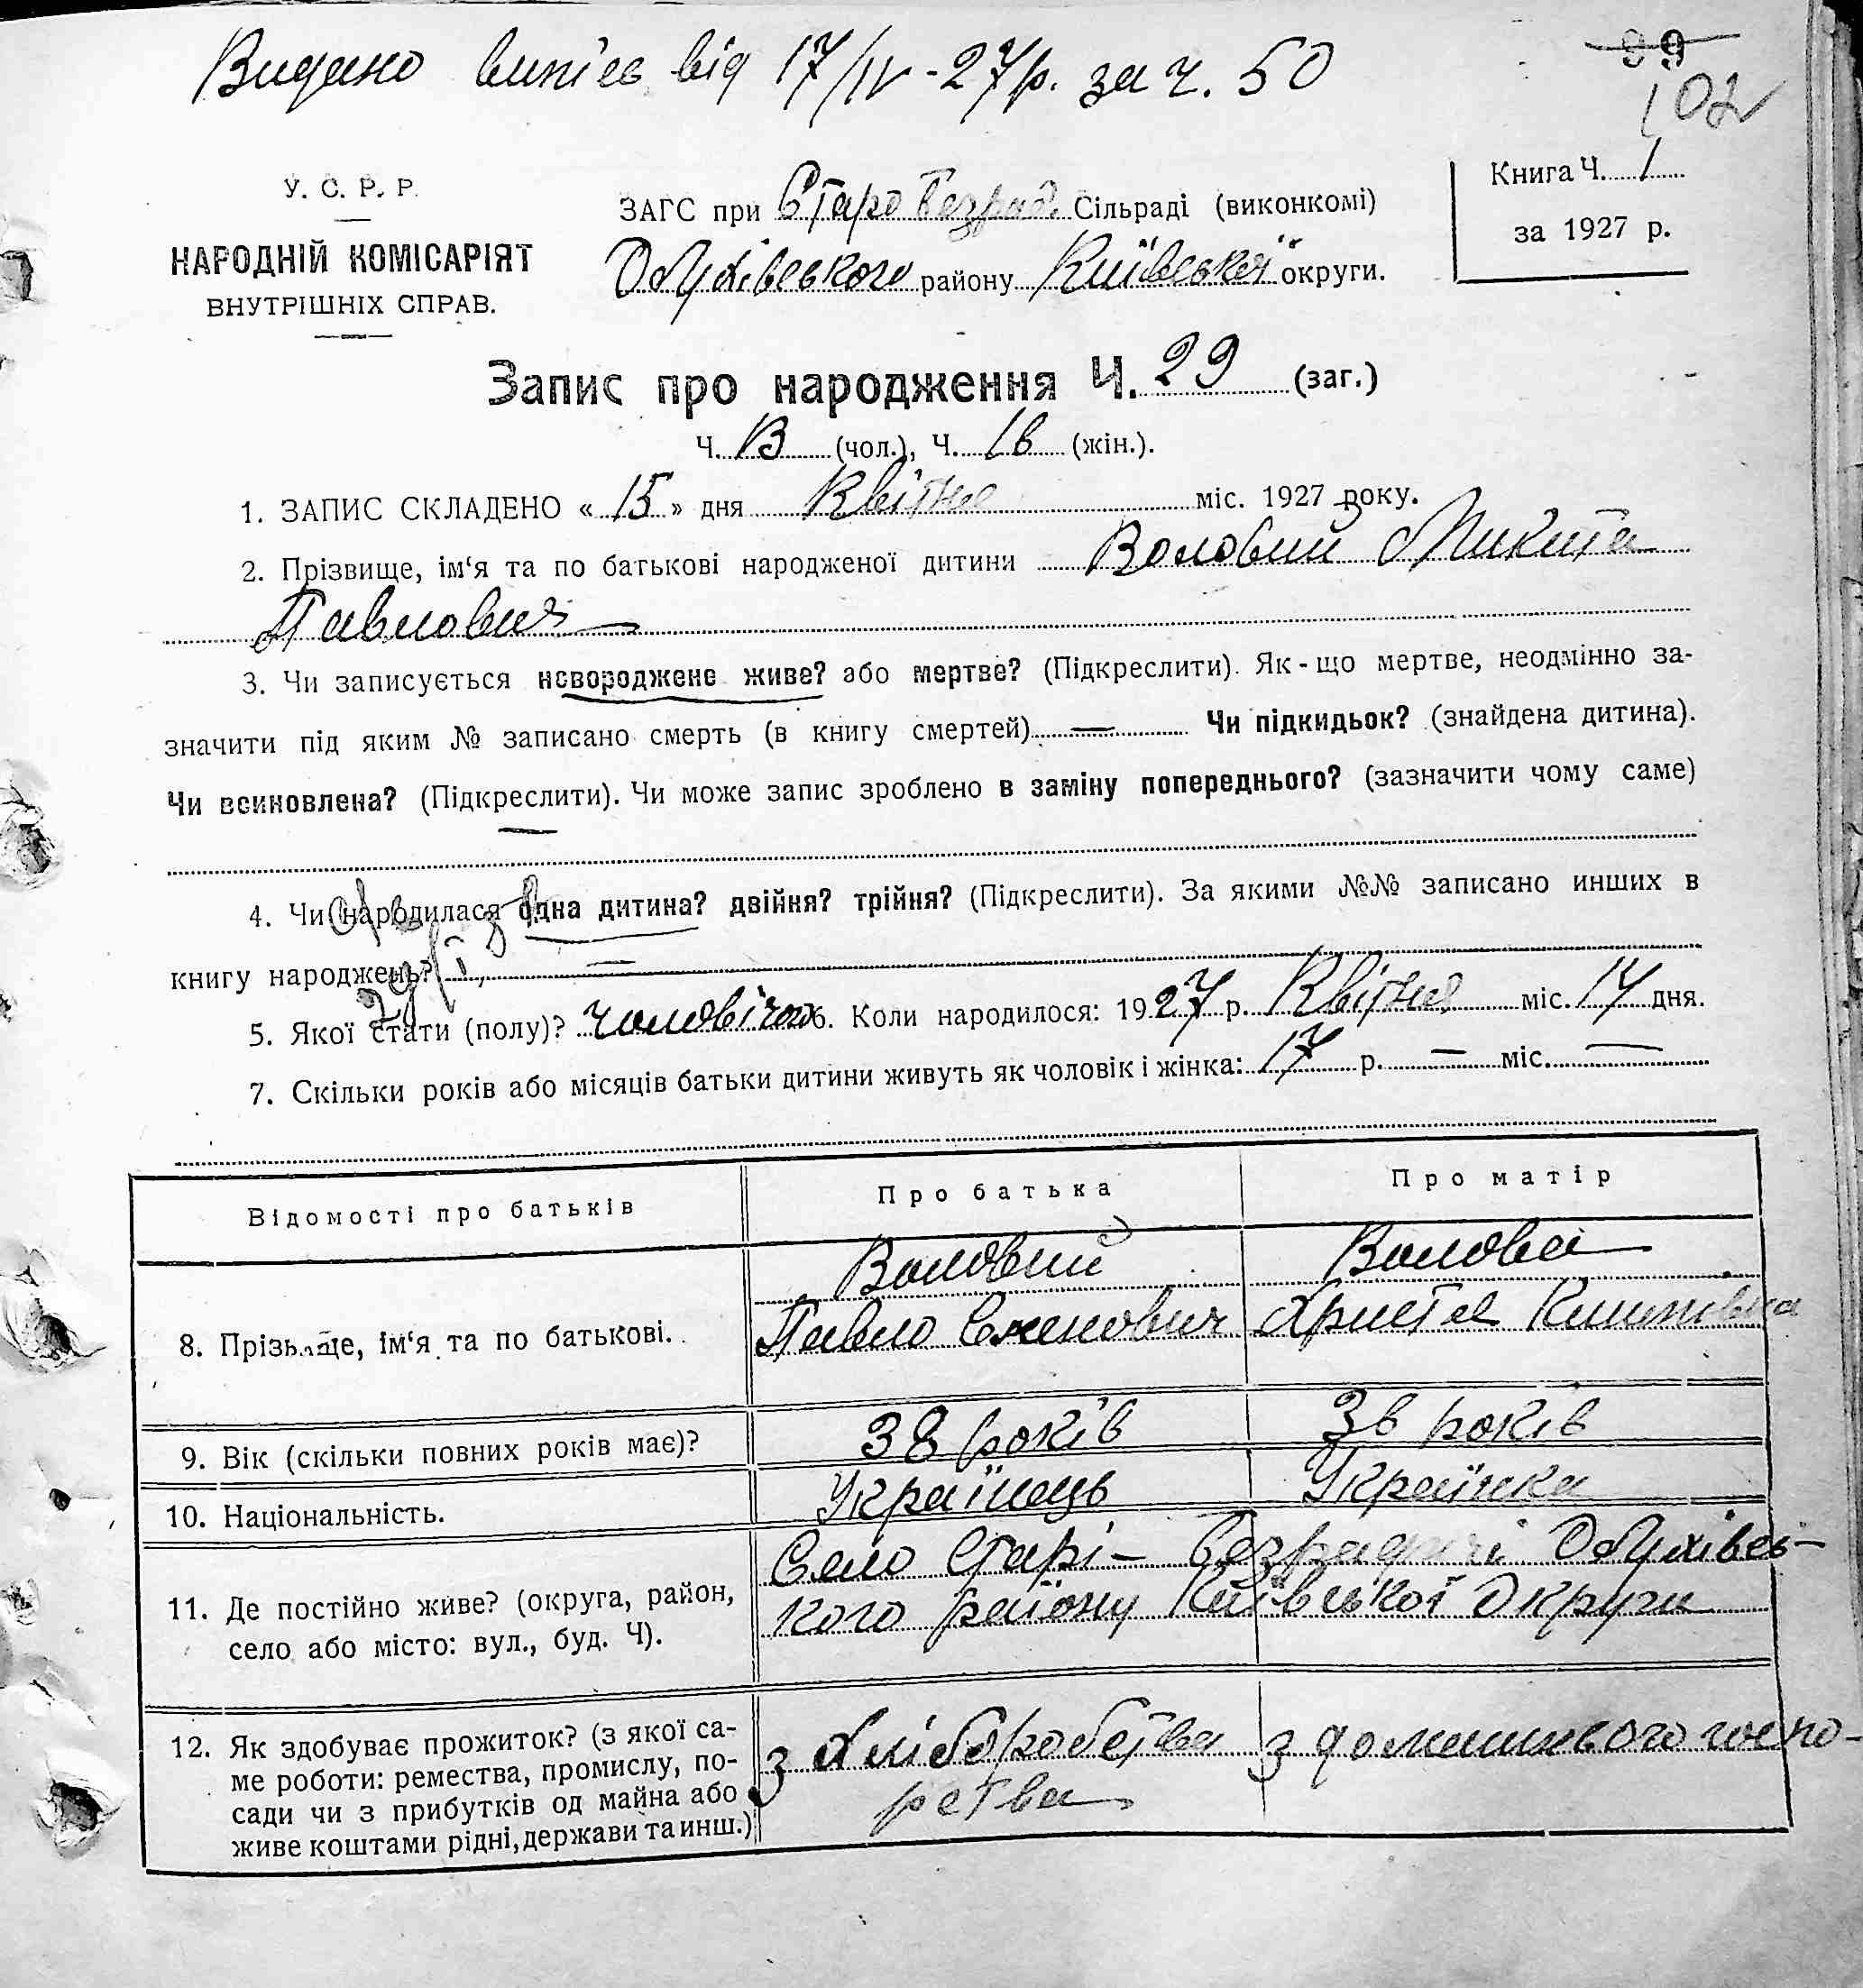 Видано випіс від 17/IV-27р. за ч. 50
99
102
У. С. Р. Р.
НАРОДНІЙ КОМІСАРІЯТ
ВНУТРІШНІХ СПРАВ.
ЗАГС при Старо Безрад. Сільраді (виконкомі)
Обухівського району Київської округи.
Книга Ч. 1
за 1927 р.
Запис про народження Ч. 29 (заг.)
Ч. 13 (чол.), Ч. 16 (жін.).
1. ЗАПИС СКЛАДЕНО « 15 » дня Квітня міс. 1927 року.
2. Прізвище, ім‘я та по батькові народженої дитини Воловий Микита
Павлович
3. Чи записується новороджене живе? або мертве? (Підкреслити). Як-що мертве, неодмінно за-
значити під яким № записано смерть (в книгу смертей) — Чи підкидьок? (знайдена дитина).
Чи всиновлена? (Підкреслити). Чи може запис зроблено в заміну попереднього? (зазначити чому саме)
4. Чи народилася одна дитина? двійня? трійня? (Підкреслити). За якими №№ записано инших в
книгу народжень? —
5. Якої стати (полу)? чоловічої 6. Коли народилося: 1927 р. Квітня міс. 14 дня.
7. Скільки років або місяців батьки дитини живуть як чоловік і жінка: 17 р. — міс. —
Відомості про батьків
Про батька
Про матір
8. Прізвище, ім‘я та по батькові.
Воловий
Павло Семенович
Волова
Христя
9. Вік (скільки повних років має)?
38 років
36 років
10. Національність.
Українець
Українка
11. Де постійно живе? (округа, район,
село або місто: вул., буд. Ч).
Село Старі- Безрадичі Обухівсь-
кого району Київської Округи
12. Як здобуває прожиток? (з якої са-
ме роботи: ремества, промислу, по-
сади чи з прибутків од майна або
живе коштами рідні, держави та инш.)
з хліборобства
з домашнього госпо-
рства